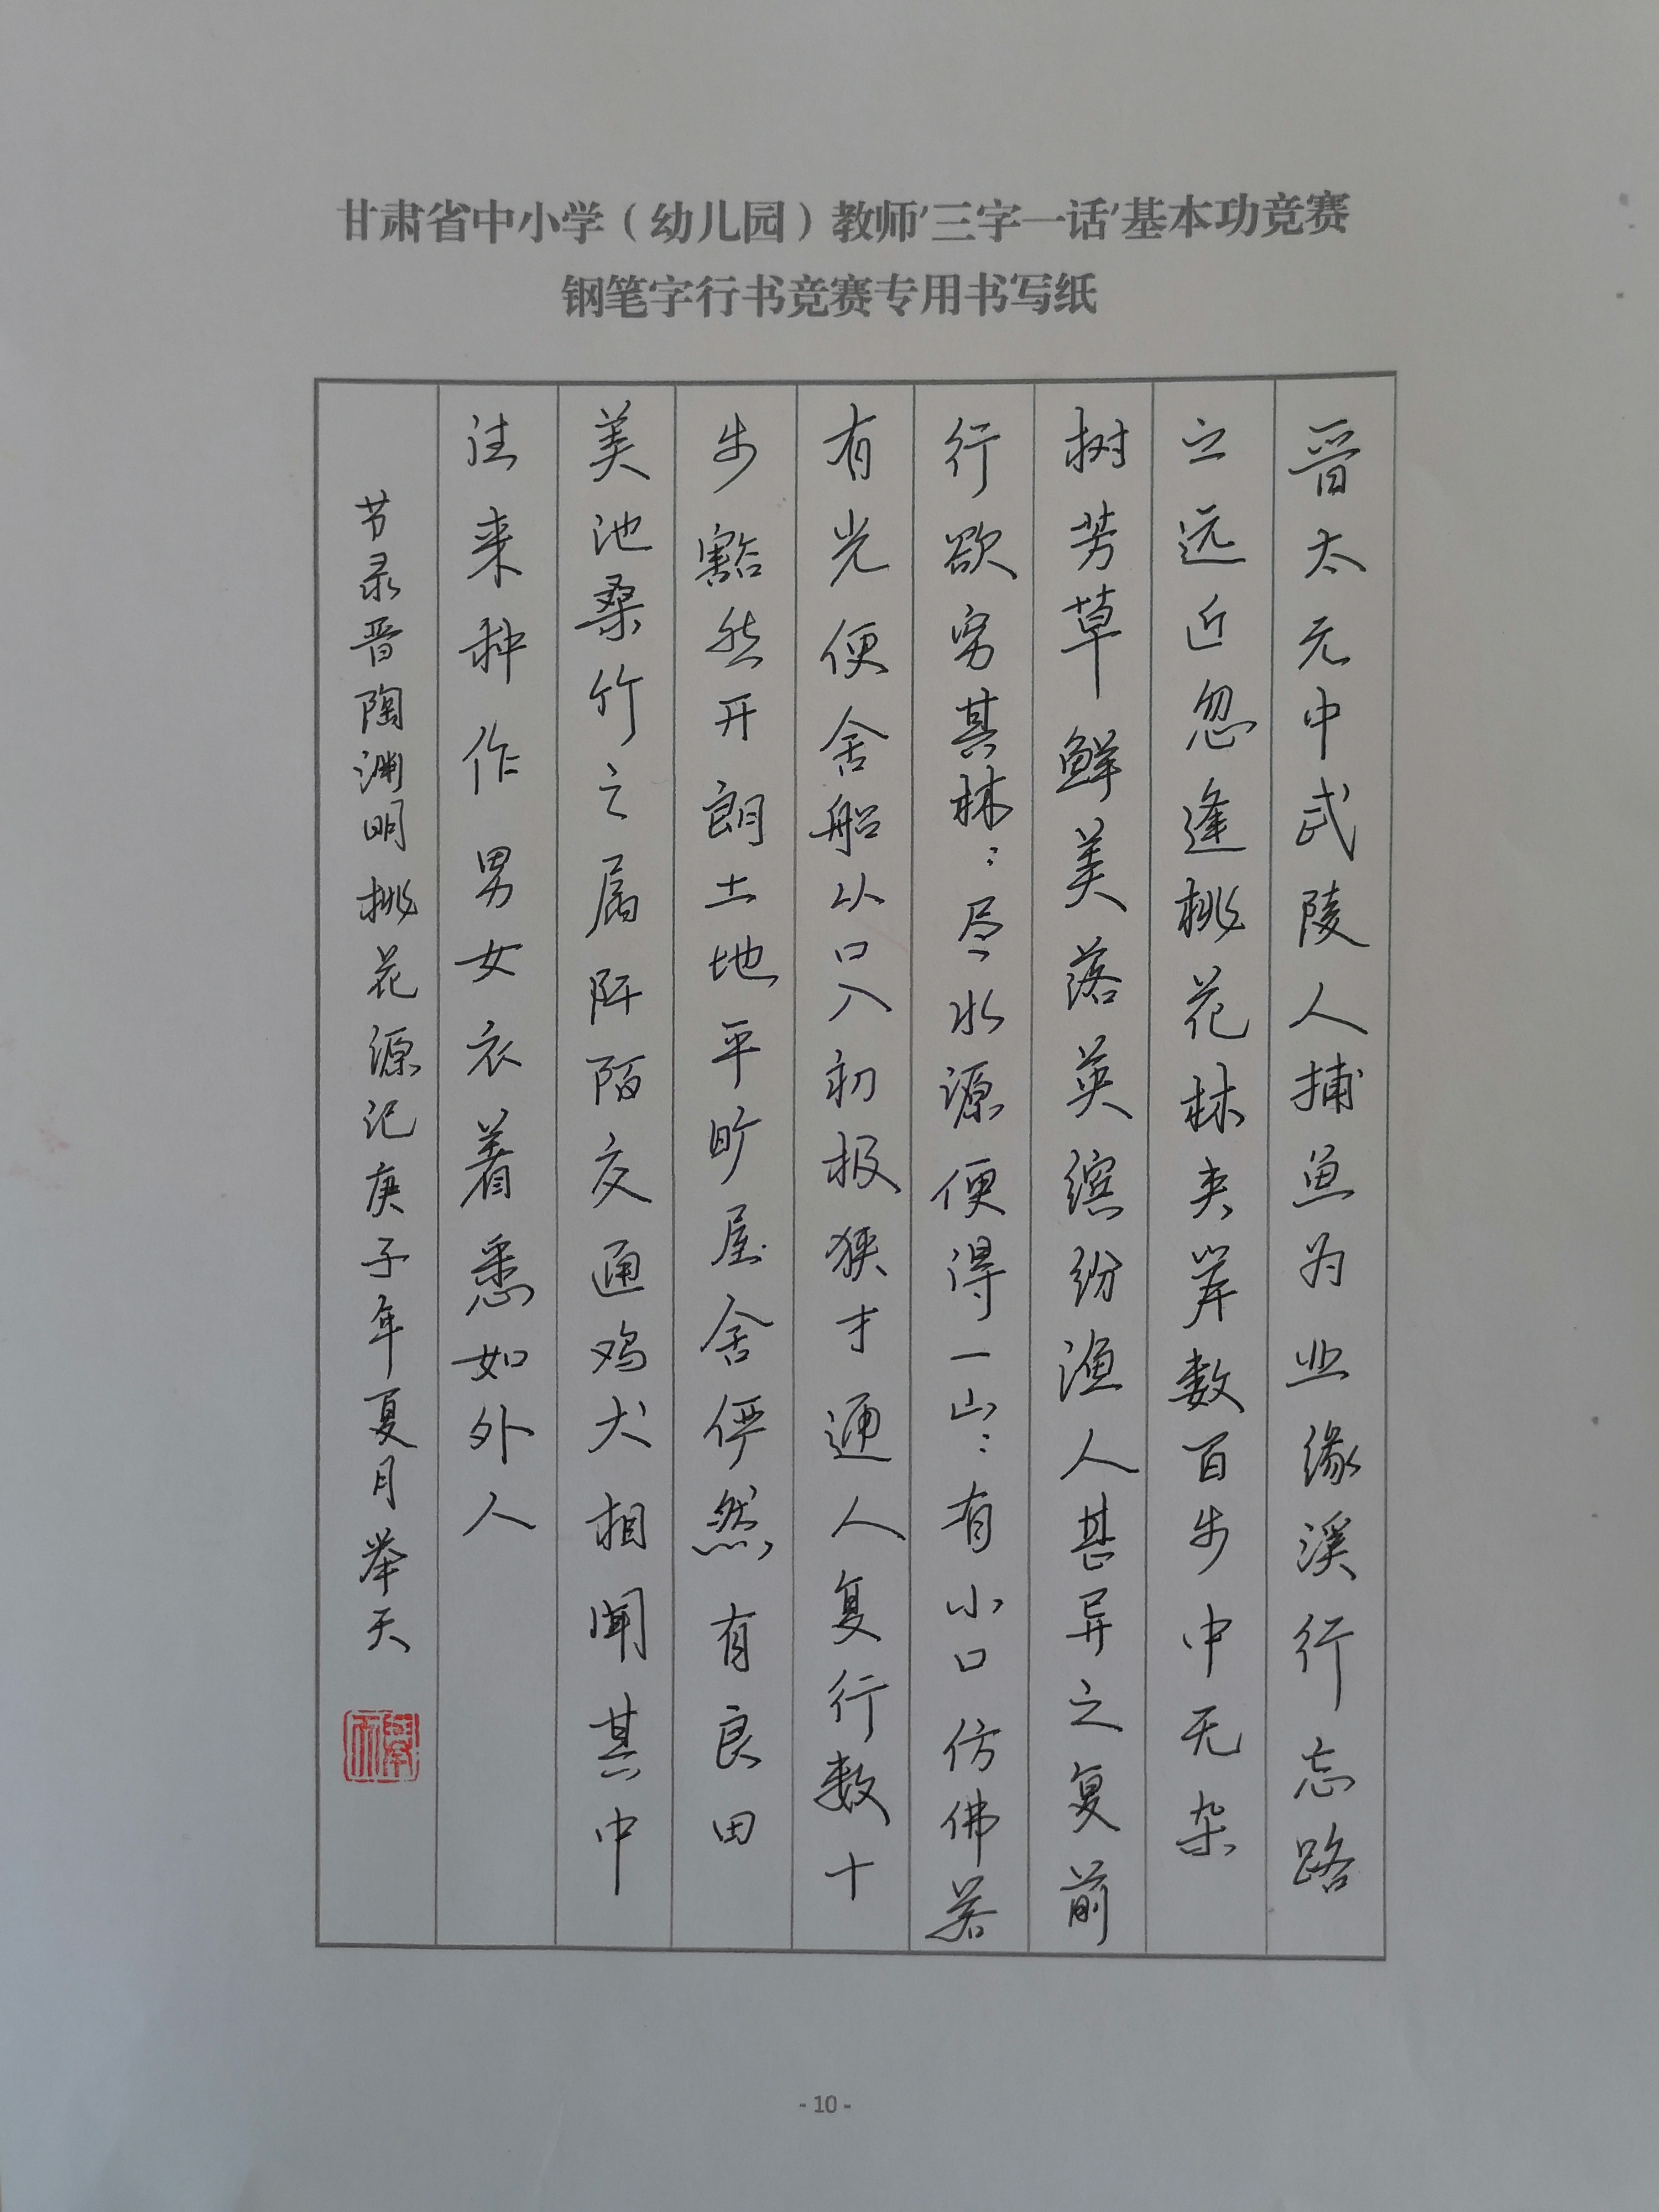 甘肃省中小学（幼儿园）教师'三字一话'基本功竞赛
钢笔字行书竞赛专用书写纸
晋太元中武陵人捕鱼为业缘溪行忘路
之远近忽逢桃花林夹岸数百步中无杂
树芳草鲜美落英缤纷渔人甚异之复前
行欲穷其林:尽水源便得一山:有小口仿佛若
有光便舍船从口入初极狭才通人复行数十
步豁然开朗土地平旷屋舍俨然有良田
美池桑竹之属阡陌交通鸡犬相闻其中
往来种作男女衣着悉如外人
节录晋陶渊明桃花源记庚子年夏月举天
举天
- 10 -